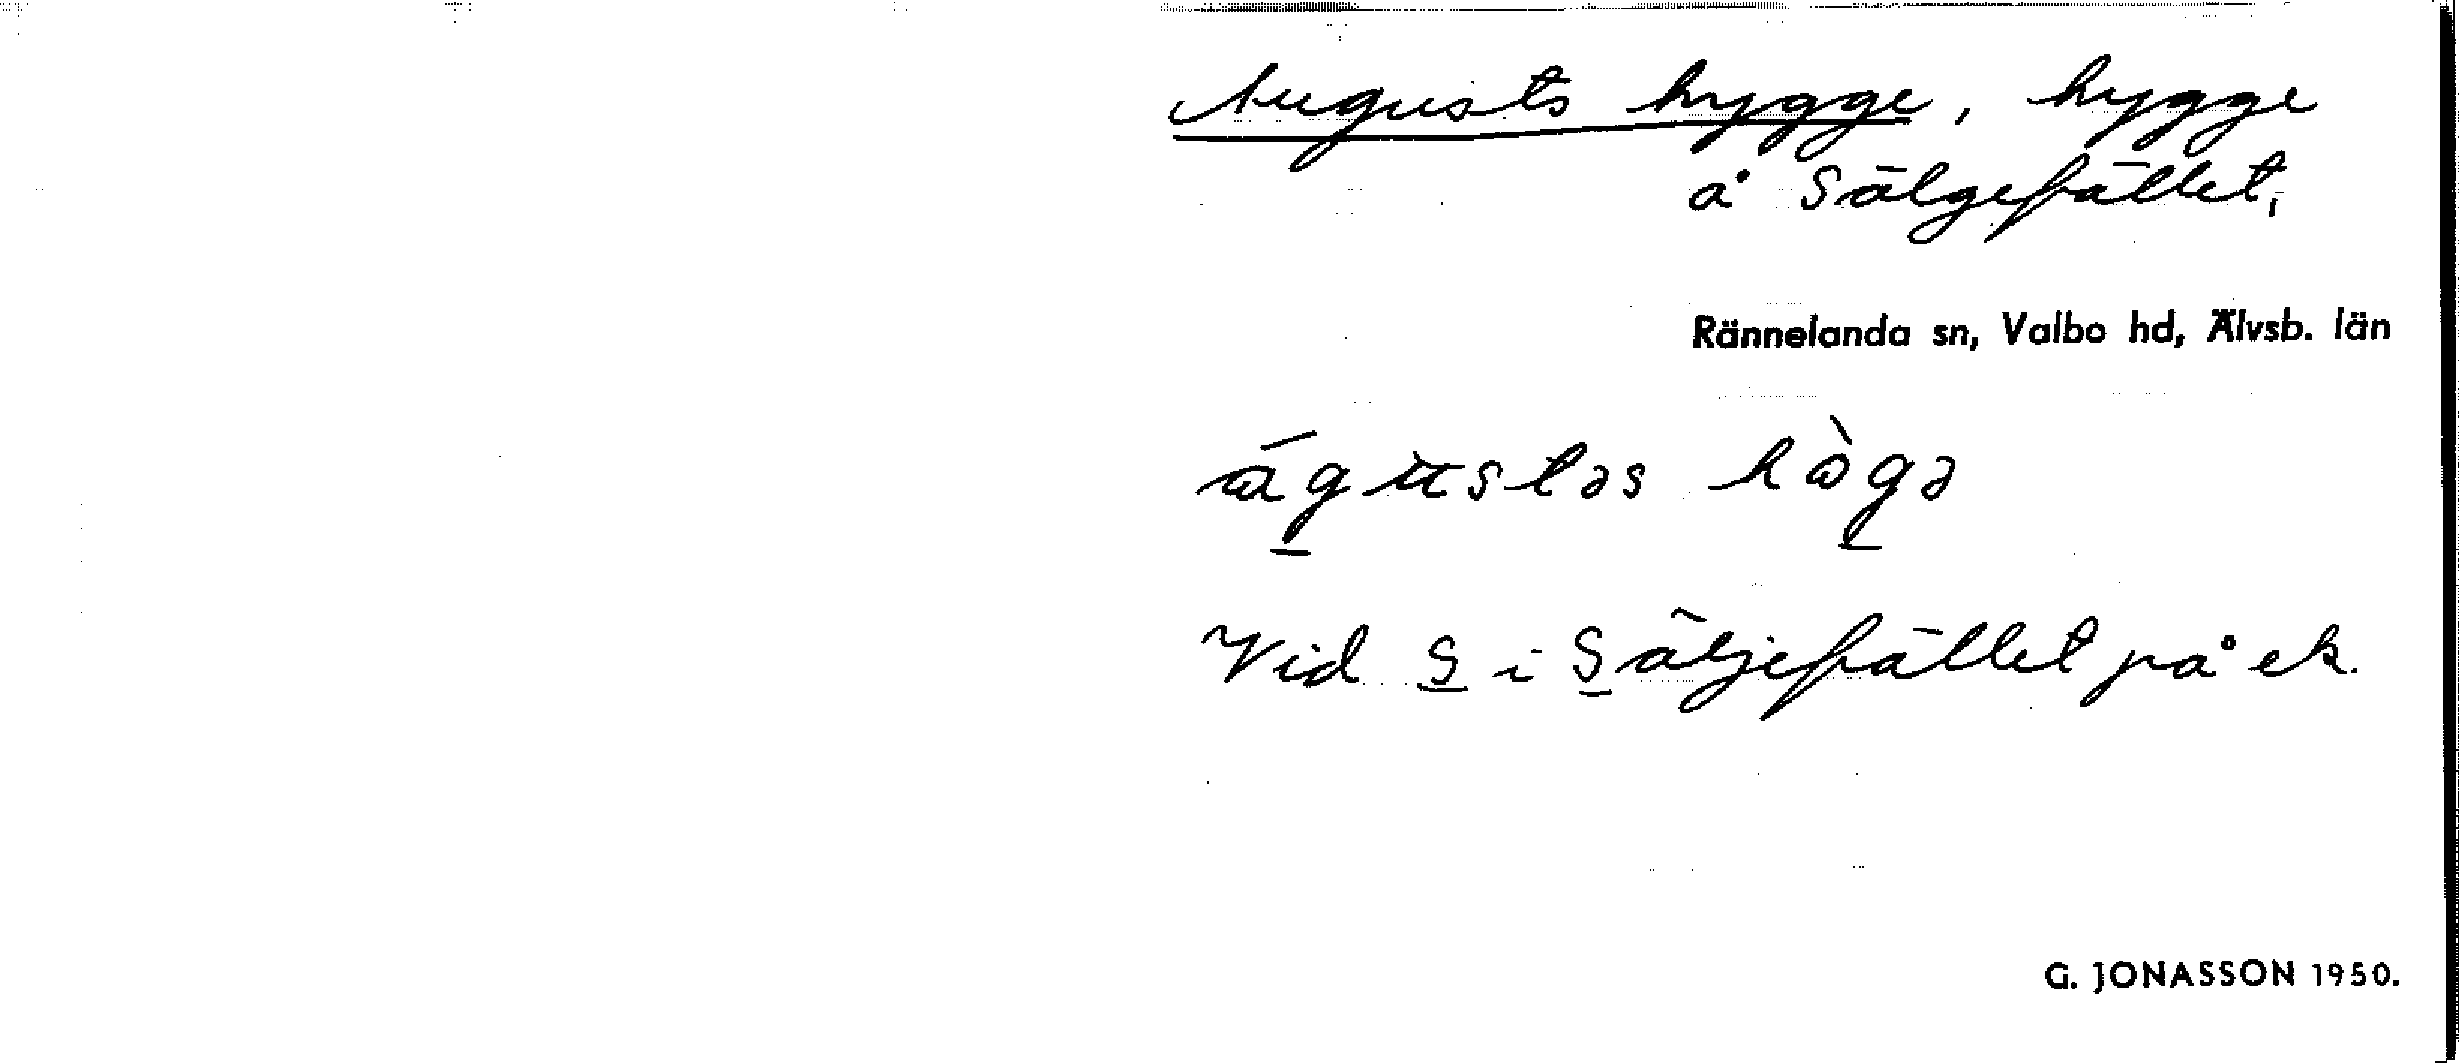 Augusts hygge, hygge
å Sälgefället,
Rännelanda sn, Valbo hd, Älvsb. län
águstəs hògə
Vid S i Säljefället på ek.
G. JONASSON 1950.